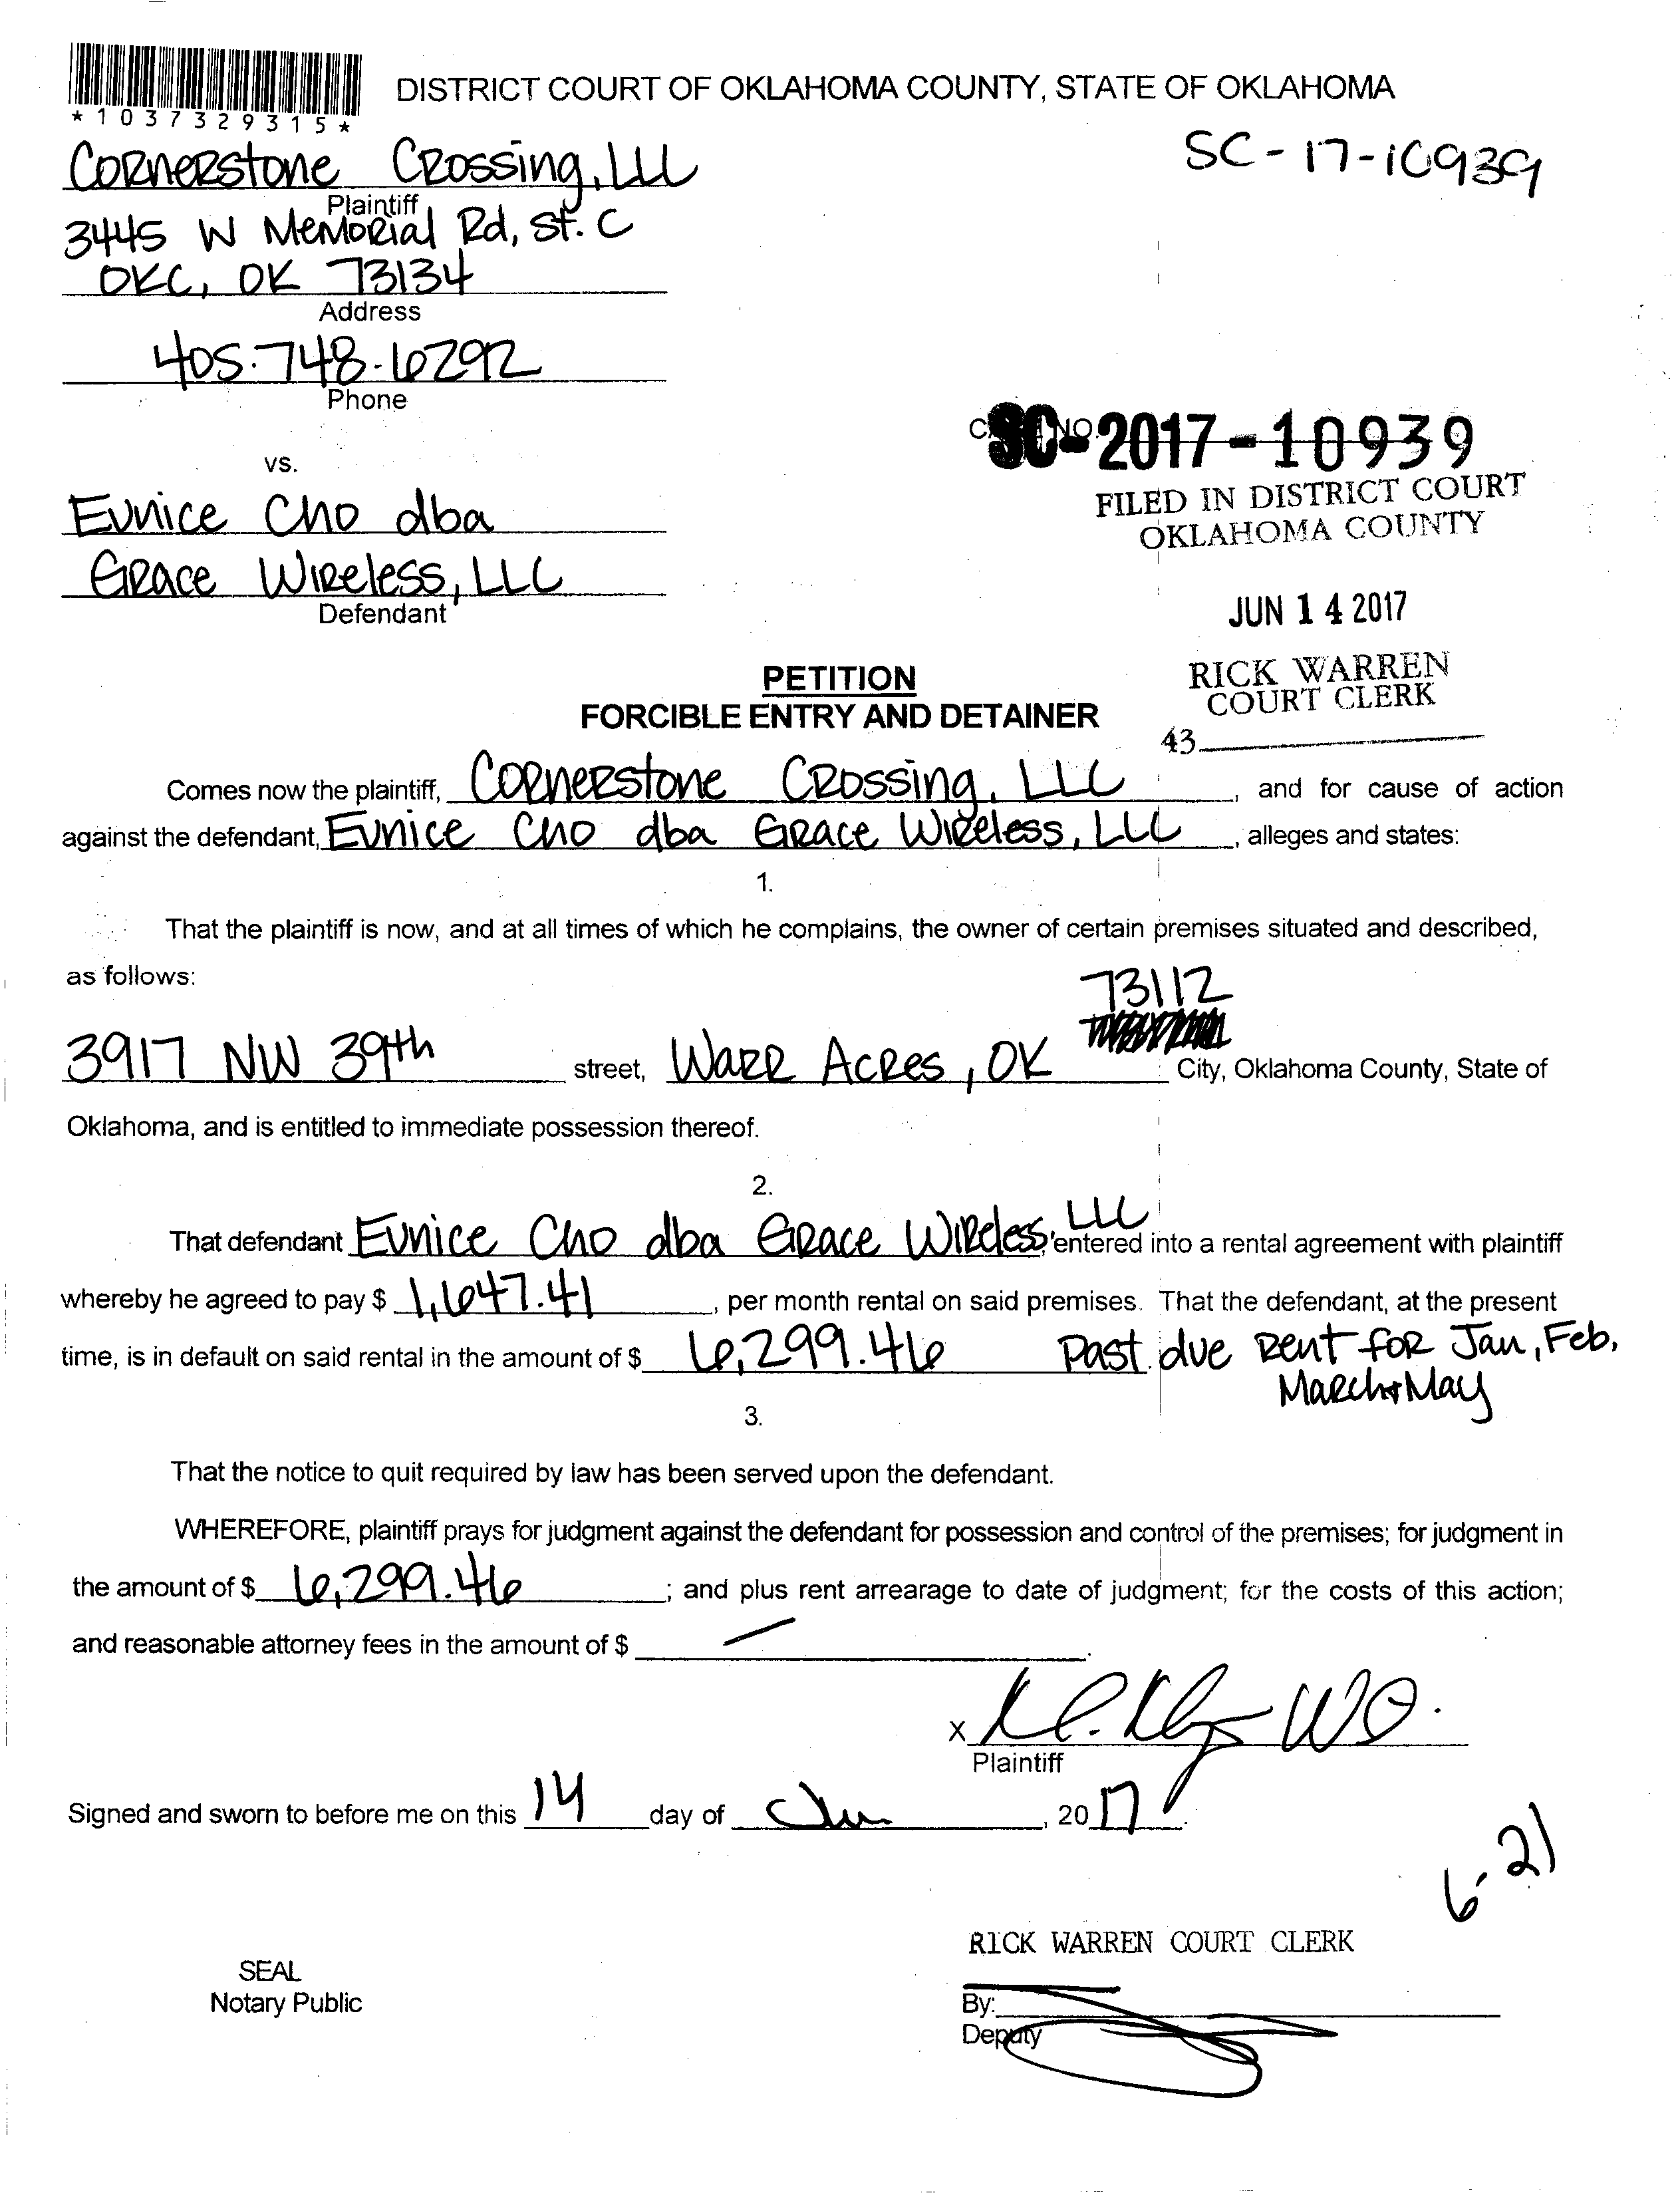 *1037329315*
DISTRICT COURT OF OKLAHOMA COUNTY, STATE OF OKLAHOMA
SC-17-10939
Cornerstone Crossing, LLC
Plaintiff
3445 W Memorial Rd, St. C
OKC, OK 73134
Address
405-748-6292
Phone
SC-2017-10939
vs.
FILED IN DISTRICT COURT
OKLAHOMA COUNTY
Eunice Cho dba
Grace Wireless, LLC
Defendant
JUN 14 2017
RICK WARREN
COURT CLERK
43
PETITION
FORCIBLE ENTRY AND DETAINER
Comes now the plaintiff, Cornerstone Crossing, LLC, and for cause of action
against the defendant, Eunice Cho dba Grace Wireless, LLC, alleges and states:
1.
That the plaintiff is now, and at all times of which he complains, the owner of certain premises situated and described,
as follows:
73112
3917 NW 39th street, Warr Acres, OK City, Oklahoma County, State of
Oklahoma, and is entitled to immediate possession thereof.
2.
That defendant Eunice Cho dba Grace Wireless, LLC, entered into a rental agreement with plaintiff
whereby he agreed to pay $ 1,647.41, per month rental on said premises. That the defendant, at the present
time, is in default on said rental in the amount of $ 6,299.46 Past due rent for Jan, Feb,
March + May
3.
That the notice to quit required by law has been served upon the defendant.
WHEREFORE, plaintiff prays for judgment against the defendant for possession and control of the premises; for judgment in
the amount of $ 6,299.46; and plus rent arrearage to date of judgment; for the costs of this action;
and reasonable attorney fees in the amount of $ —.
X
Plaintiff
Signed and sworn to before me on this 14 day of Jun, 2017.
6-21
RICK WARREN COURT CLERK
SEAL
Notary Public
By:
Deputy